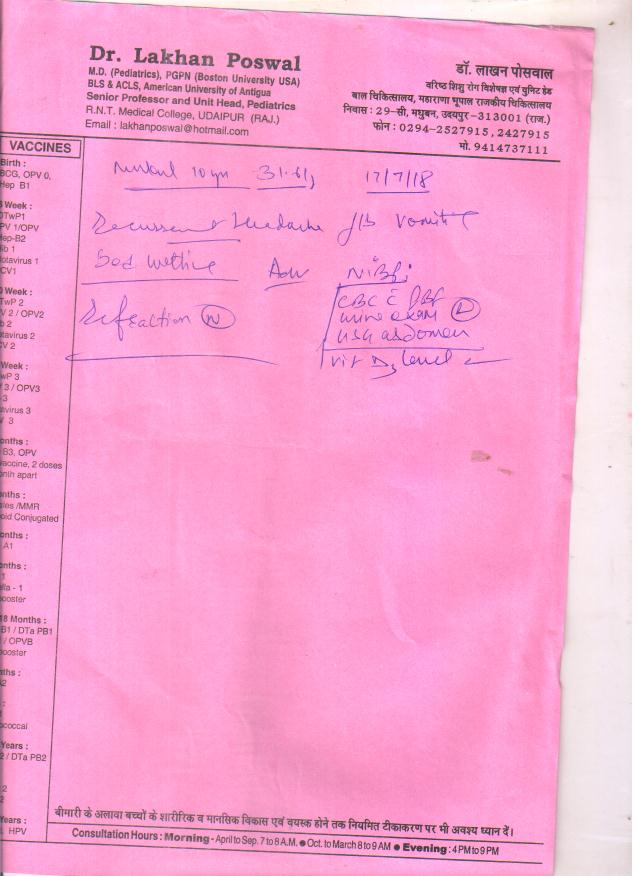 Dr. Lakhan Poswal
M.D. (Pediatrics), PGPN (Boston University USA)
BLS & ACLS, American University of Antigua
Senior Professor and Unit Head, Pediatrics
R.N.T. Medical College, UDAIPUR (RAJ.)
Email : lakhanposwal@hotmail.com
डॉ. लाखन पोसवाल
वरिष्ठ शिशु रोग विशेषज्ञ एवं युनिट हेड
बाल चिकित्सालय, महाराणा भूपाल राजकीय चिकित्सालय
निवास : 29-सी, मधुबन, उदयपुर-313001 (राज.)
फोन : 0294-2527915, 2427915
मो. 9414737111
VACCINES
Birth :
BCG, OPV 0,
Hep B1
Week :
DTwP1
PV 1/OPV
ep-B2
ib 1
otavirus 1
CV1
Week :
TwP 2
V 2 / OPV2
b 2
tavirus 2
V 2
Week :
wP 3
3 / OPV3
3
avirus 3
3
onths :
B3, OPV
vaccine, 2 doses
onth apart
nths :
les /MMR
oid Conjugated
onths :
A1
onths :
1
lla - 1
ooster
18 Months :
B1 / DTa PB1
/ OPVB
ooster
ths :
2
:
ococcal
Years :
2 / DTa PB2
2
2
Years :
HPV
10 yr 17/7/18
Recurrent Headache
Bed wetting Adv
Refraction N
CBC c PBF
urine exam
USG abdomen
Vit D3 level
बीमारी के अलावा बच्चों के शारीरिक व मानसिक विकास एवं वयस्क होने तक नियमित टीकाकरण पर भी अवश्य ध्यान दें।
Consultation Hours : Morning - April to Sep. 7 to 8 A.M. ● Oct. to March 8 to 9 AM ● Evening : 4 PM to 9 PM